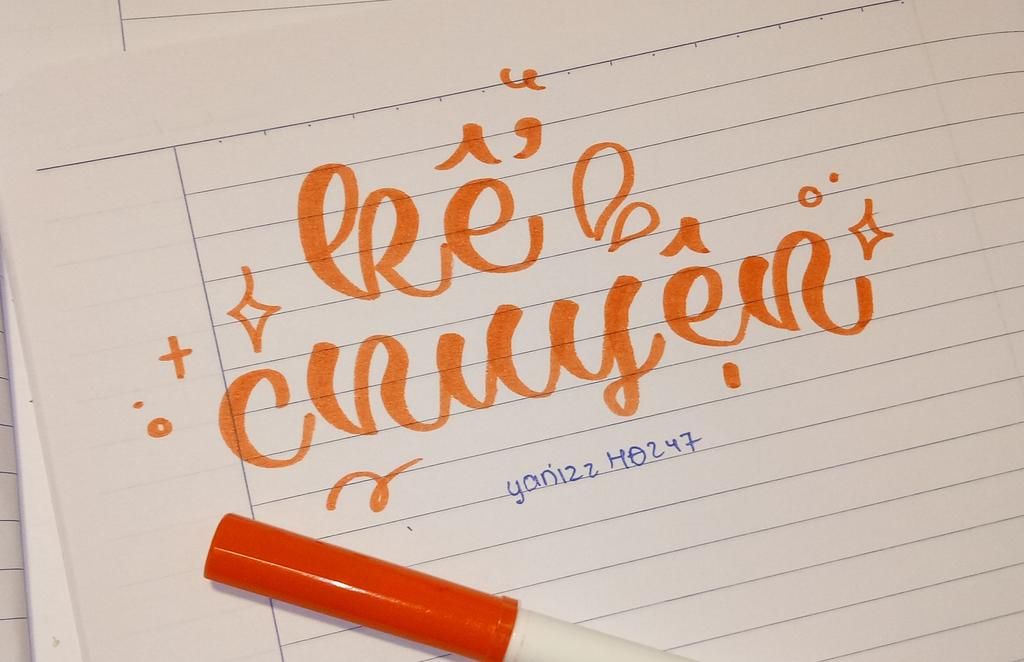 kể
chuyện
yanizz H0247